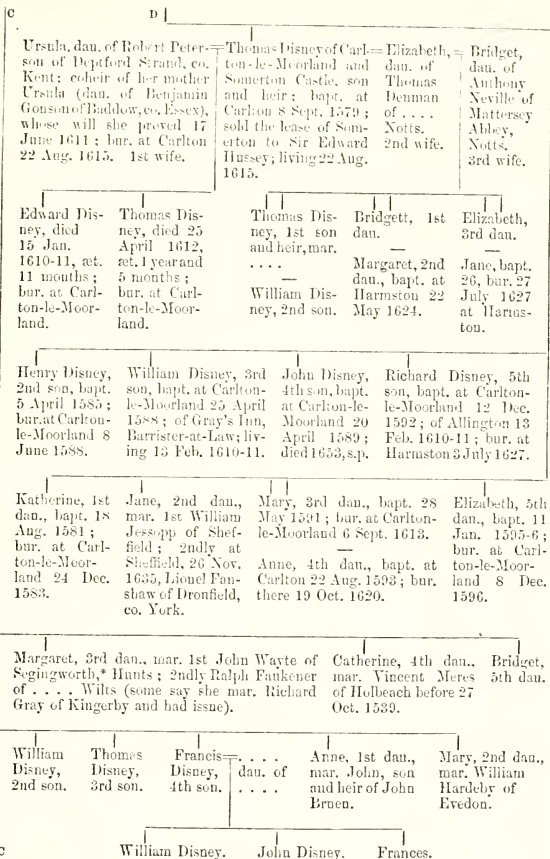 C
D
Ursula, dau. of Robert Peter-
son of Deptford Strand, co.
Kent; coheir of her mother
Ursula (dau. of Benjamin
Gonson of Baddow, co. Essex),
whose will she proved 17
June 1611; bur. at Carlton
22 Aug. 1615. 1st wife.
Thomas Disney of Carl-
ton-le-Moorland and
Somerton Castle, son
and heir; bapt. at
Carlton 8 Sept. 1579;
sold the lease of Som-
erton to Sir Edward
Hussey; living 22 Aug.
1615.
Elizabeth,
dau. of
Thomas
Denman
of . . . .
Notts.
2nd wife.
Bridget,
dau. of
Anthony
Neville of
Mattersey
Abbey,
Notts.
3rd wife.
Edward Dis-
ney, died
15 Jan.
1610-11, æt.
11 months;
bur. at Carl-
ton-le-Moor-
land.
Thomas Dis-
ney, died 25
April 1612,
æt. 1 year and
5 months;
bur. at Carl-
ton-le-Moor-
land.
Thomas Dis-
ney, 1st son
and heir, mar.
. . . .
—
William Dis-
ney, 2nd son.
Bridgett, 1st
dau.
—
Margaret, 2nd
dau., bapt. at
Harmston 22
May 1624.
Elizabeth,
3rd dau.
—
Jane, bapt.
26, bur. 27
July 1627
at Harms-
ton.
Henry Disney,
2nd son, bapt.
5 April 1585;
bur. at Carlton-
le-Moorland 8
June 1588.
William Disney, 3rd
son, bapt. at Carlton-
le-Moorland 25 April
1588; of Gray's Inn,
Barrister-at-Law; liv-
ing 13 Feb. 1610-11.
John Disney,
4th son, bapt.
at Carlton-le-
Moorland 20
April 1589;
died 1653, s.p.
Richard Disney, 5th
son, bapt. at Carlton-
le-Moorland 12 Dec.
1592; of Allington 13
Feb. 1610-11; bur. at
Harmston 3 July 1627.
Katherine, 1st
dau., bapt. 18
Aug. 1581;
bur. at Carl-
ton-le-Moor-
land 24 Dec.
1583.
Jane, 2nd dau.,
mar. 1st William
Jessopp of Shef-
field; 2ndly at
Sheffield, 26 Nov.
1635, Lionel Fan-
shaw of Dronfield,
co. York.
Mary, 3rd dau., bapt. 28
May 1591; bur. at Carlton-
le-Moorland 6 Sept. 1613.
—
Anne, 4th dau., bapt. at
Carlton 22 Aug. 1593; bur.
there 19 Oct. 1620.
Elizabeth, 5th
dau., bapt. 11
Jan. 1595-6;
bur. at Carl-
ton-le-Moor-
land 8 Dec.
1596.
Margaret, 3rd dau., mar. 1st John Wayte of
Segingworth,* Hunts; 2ndly Ralph Faukener
of . . . . Wilts (some say she mar. Richard
Gray of Kingerby and had issue).
Catherine, 4th dau.,
mar. Vincent Meres
of Holbeach before 27
Oct. 1539.
Bridget,
5th dau.
William
Disney,
2nd son.
Thomas
Disney,
3rd son.
Francis
Disney,
4th son.
. . . .
dau. of
. . . .
Anne, 1st dau.,
mar. John, son
and heir of John
Bruen.
Mary, 2nd dau.,
mar. William
Hardeby of
Evedon.
C
William Disney.
John Disney.
Frances.